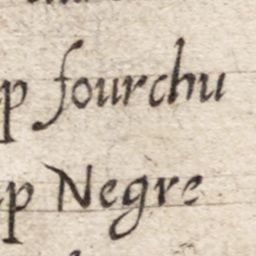 p fourchu
p Negre